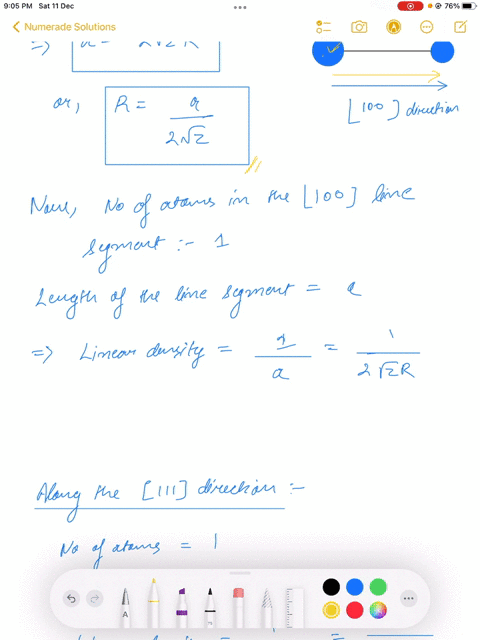 9:05 PM Sat 11 Dec
76%
Numerade Solutions
=> a = 2√2 R
or, R = a / 2√2
[100] direction
Now, No of atoms in the [100] line
segment :- 1
Length of the line segment = a
=> Linear density = 1 / a = 1 / 2√2R
Along the [111] direction :-
No of atoms = 1
A